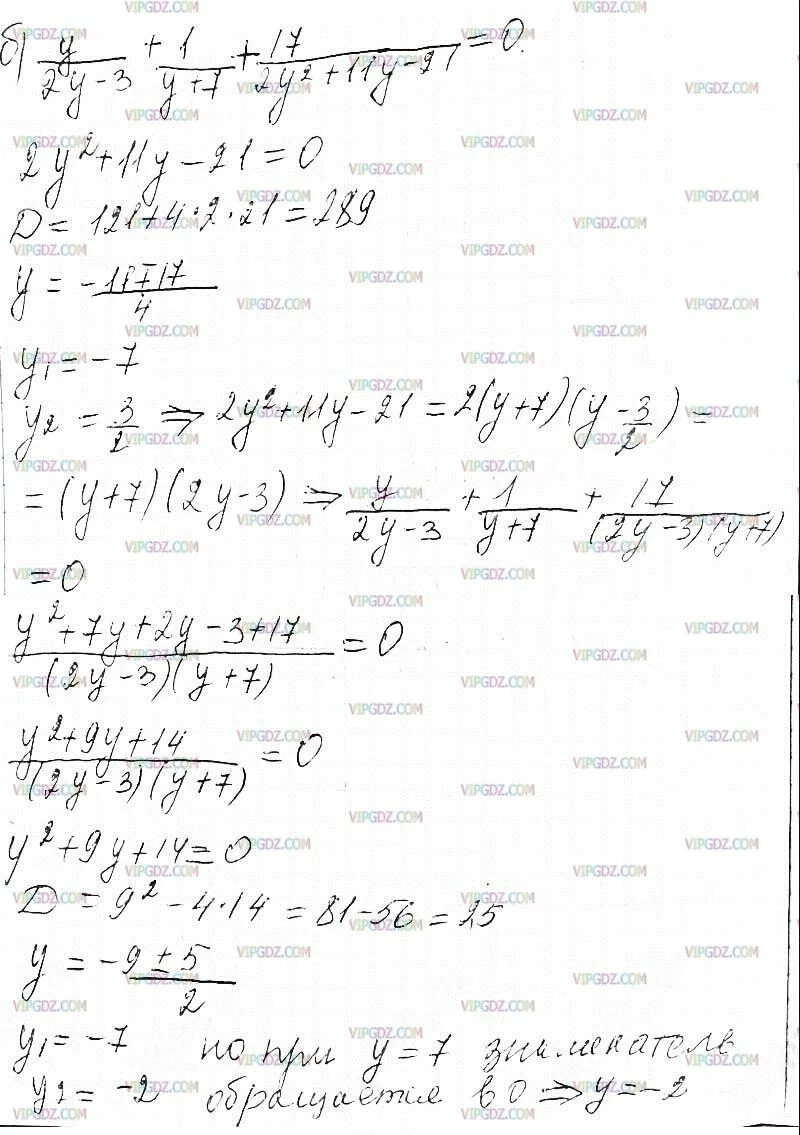 б) y/(2y-3) + 1/(y+7) + 17/(2y²+11y-21) = 0.
2y²+11y-21=0
D = 121+4·2·21=289
y = (-11∓17)/4
y₁=-7
y₂ = 3/2 ⇒ 2y²+11y-21=2(y+7)(y-3/2)=
=(y+7)(2y-3) ⇒ y/(2y-3) + 1/(y+7) + 17/((2y-3)(y+7))
=0
(y²+7y+2y-3+17)/((2y-3)(y+7)) = 0
(y²+9y+14)/((2y-3)(y+7)) = 0
y²+9y+14=0
D = 9²-4·14=81-56=25
y = (-9±5)/2
y₁=-7 но при y=7 знаменатель
y₂=-2 обращается в 0 ⇒ y=-2
VIPGDZ.COM